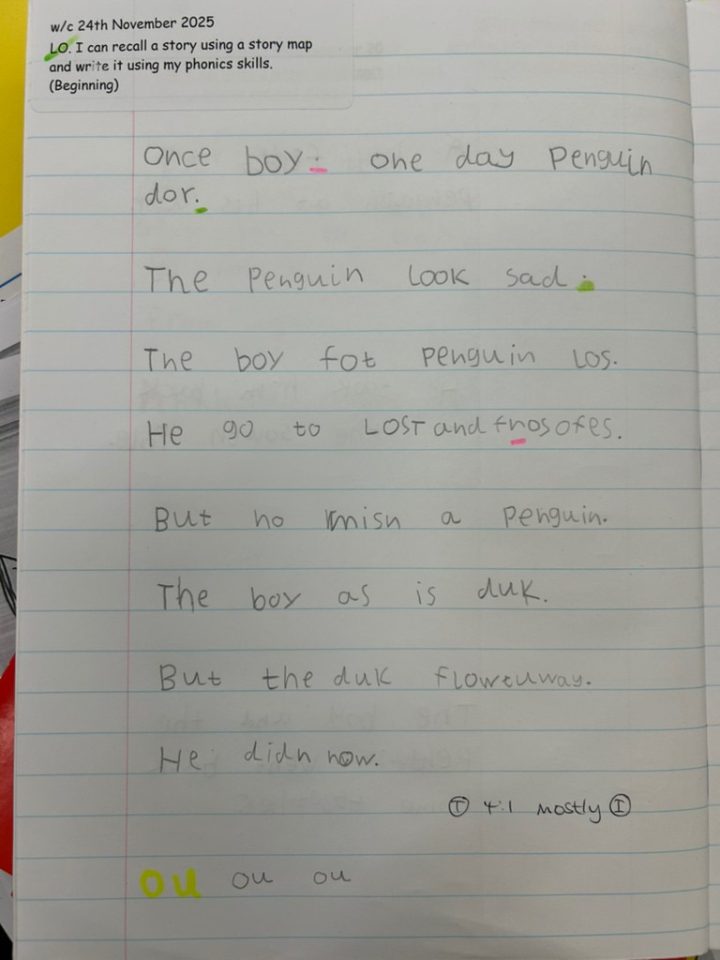 w/c 24th November 2025
LO. I can recall a story using a story map
and write it using my phonics skills.
(Beginning)
Once boy. one day Penguin
dor.
The Penguin look sad.
The boy fot Penguin Los.
He go to LOST and fnosofes.
But no misn a penguin.
The boy as is duk.
But the duk floweuway.
He didn now.
T 4:1 mostly I
ou ou ou